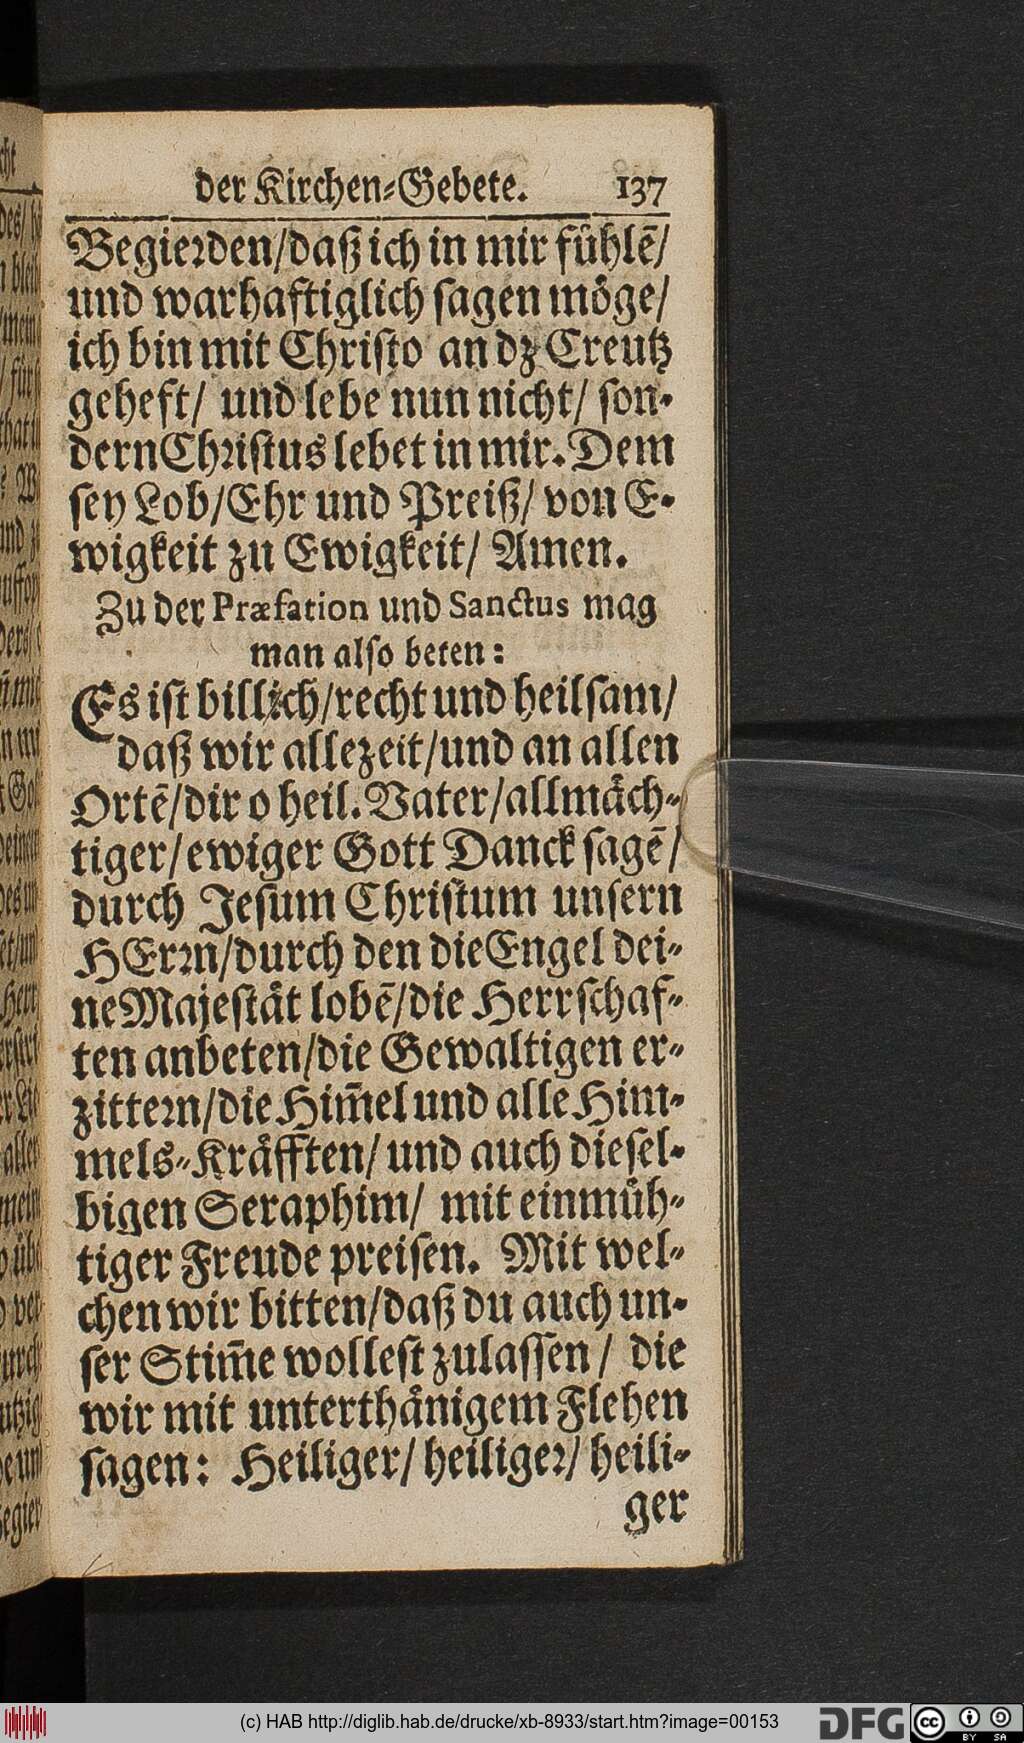 der Kirchen-Gebete. 137
Begierden/daß ich in mir fühlē/
und warhaftiglich sagen möge/
ich bin mit Christo an dz Creutz
geheft/ und lebe nun nicht/ son-
dern Christus lebet in mir. Dem
sey Lob/Ehr und Preiß/ von E-
wigkeit zu Ewigkeit/ Amen.
Zu der Præfation und Sanctus mag
man also beten:
Es ist billich/recht und heilsam/
daß wir allezeit/und an allen
Ortē/dir o heil. Vater/allmäch-
tiger/ewiger Gott Danck sagē/
durch Jesum Christum unsern
HErrn/durch den die Engel dei-
ne Majestät lobē/die Herrschaf-
ten anbeten/die Gewaltigen er-
zittern/die Him̄el und alle Him-
mels-Kräfften/ und auch diesel-
bigen Seraphim/ mit einmüh-
tiger Freude preisen. Mit wel-
chen wir bitten/daß du auch un-
ser Stim̄e wollest zulassen/ die
wir mit unterthänigem Flehen
sagen: Heiliger/ heiliger/ heili-
ger
(c) HAB http://diglib.hab.de/drucke/xb-8933/start.htm?image=00153
DFG
cc BY SA